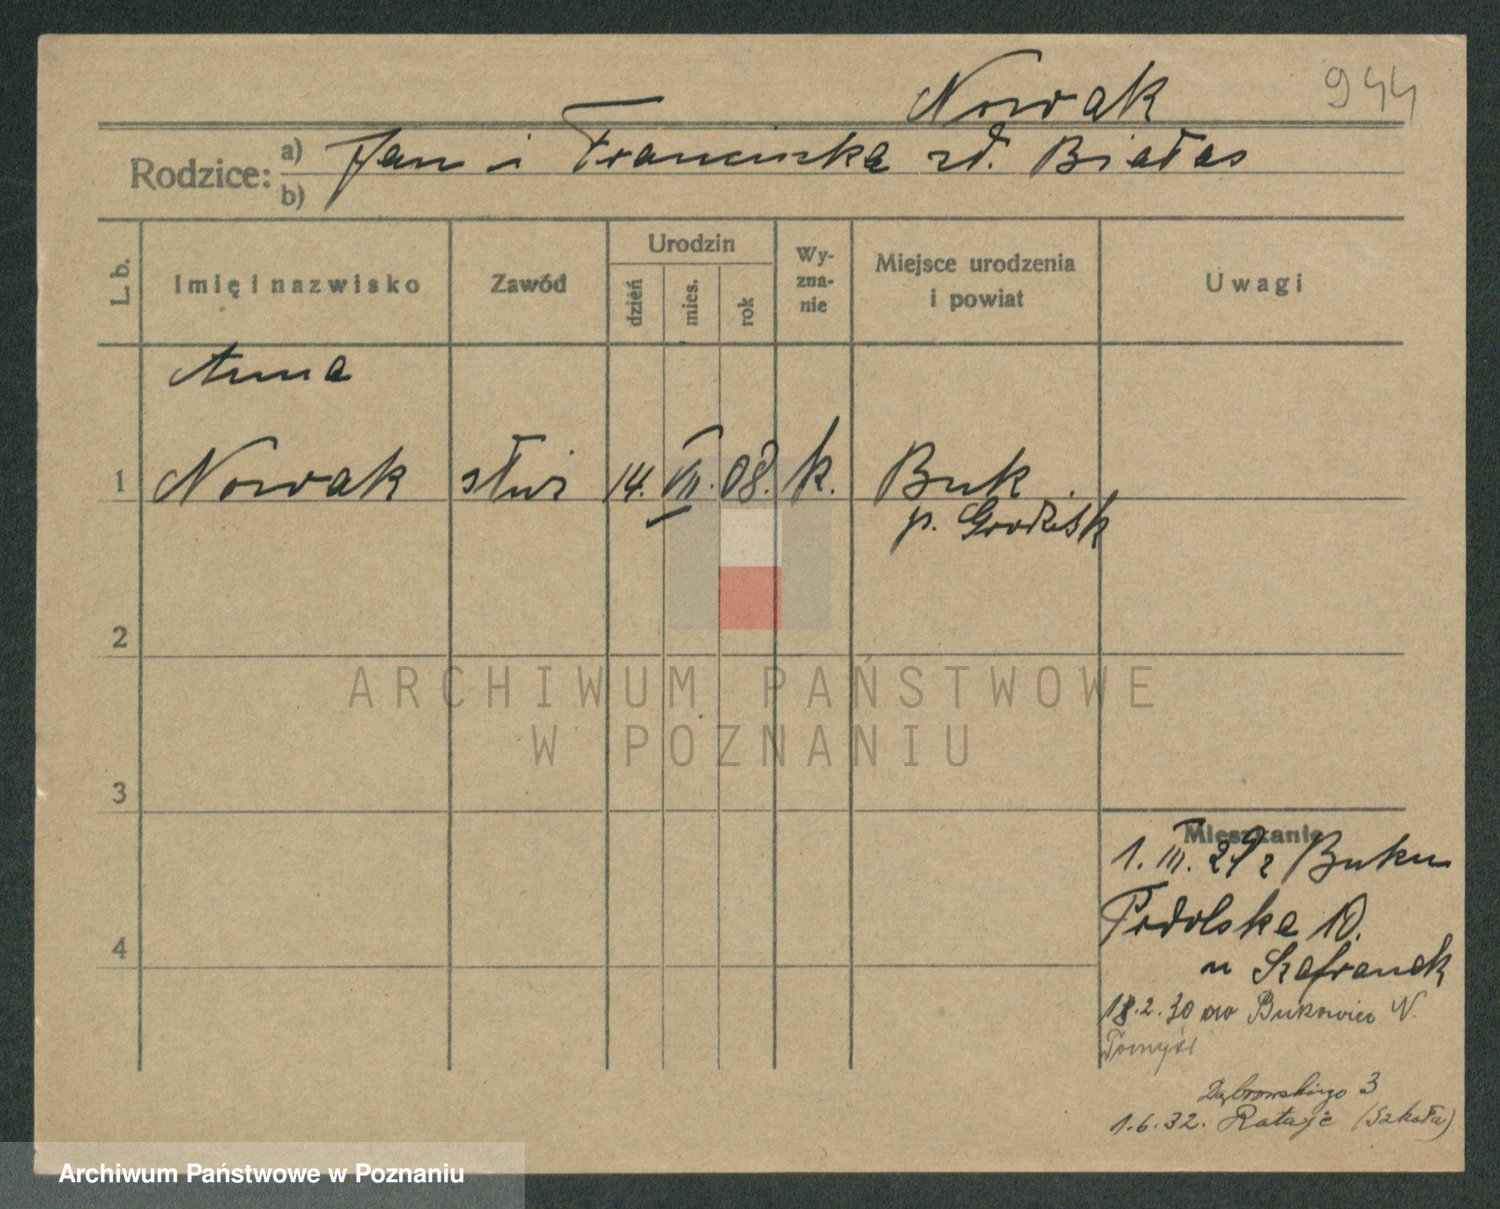 Nowak 944
Rodzice: a) Jan i Franciszka zd. Białas
b)
L. b. Imię i nazwisko Zawód Urodzin dzień mies. rok Wy-zna-nie Miejsce urodzenia i powiat Uwagi
Anna
1 Nowak służ 14. VII. 08. k. Buk
p. Grodzisk
2
ARCHIWUM PAŃSTWOWE
W POZNANIU
3
Mieszkanie
1. III. 29 z Buku
Podolska 10.
u Szafranek
4
18.2.30 do Bukowiec N.
Tomyśl
Dąbrowskiego 3
1.6.32. Rataje (Szkoła)
Archiwum Państwowe w Poznaniu